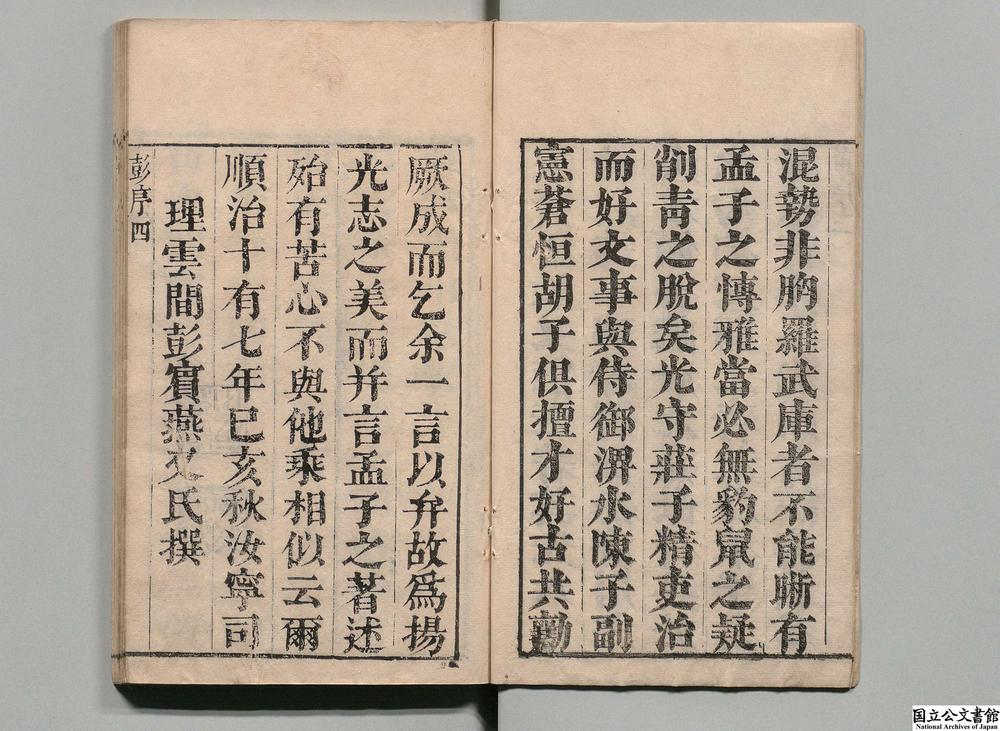 混勢非胸羅武庫者不能晰有
孟子之慱雅當必無豹鼠之疑
削靑之脫矣光守莊子精吏治
而好文事與侍御淠水陳子副
憲蒼恒胡子俱擅才好古共勷
厥成而乞余一言以弁故爲揚
光志之美而并言孟子之著述
殆有苦心不與他乘相似云爾
順治十有七年巳亥秋汝寧司
理雲間彭賓燕又氏撰
彭序四
国立公文書館
National Archives of Japan